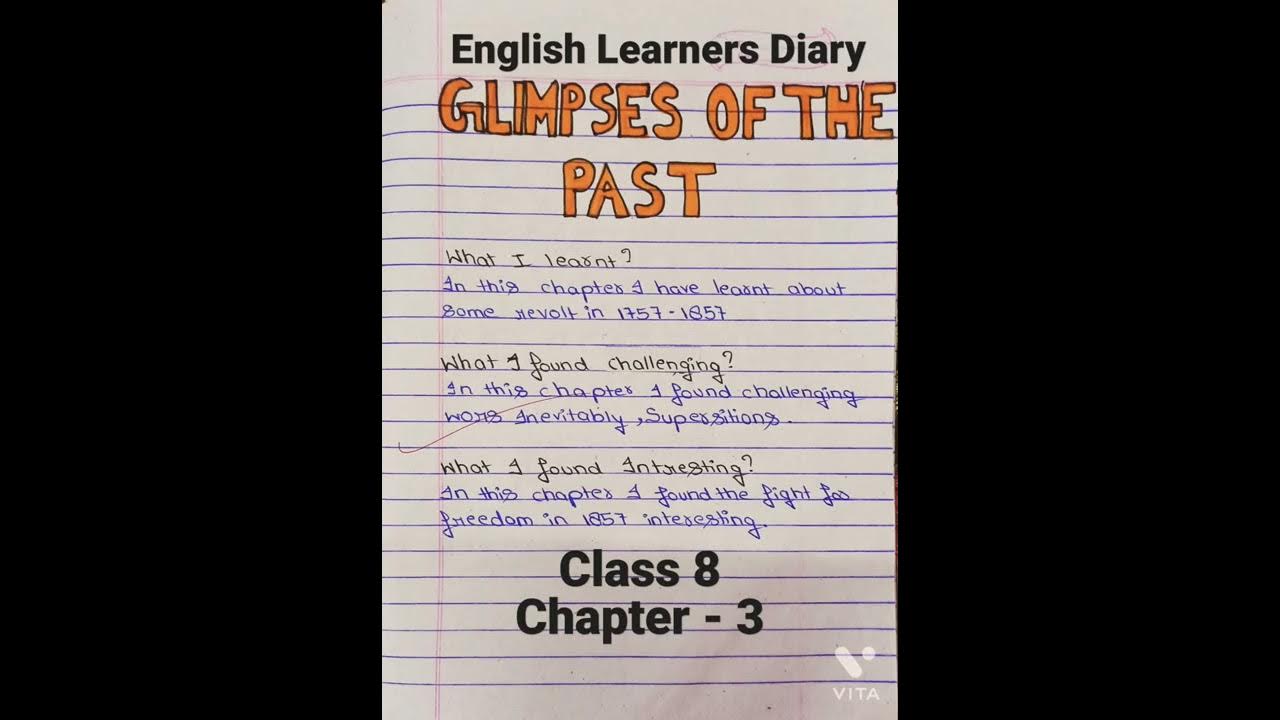 English Learners Diary
GLIMPSES OF THE
PAST
What I learnt?
In this chapter I have learnt about
some revolt in 1757-1857
What I found challenging?
In this chapter I found challenging
wors Inevitably, Supersitions.
What I found Intresting?
In this chapter I found the fight for
freedom in 1857 interesting.
Class 8
Chapter - 3
VITA